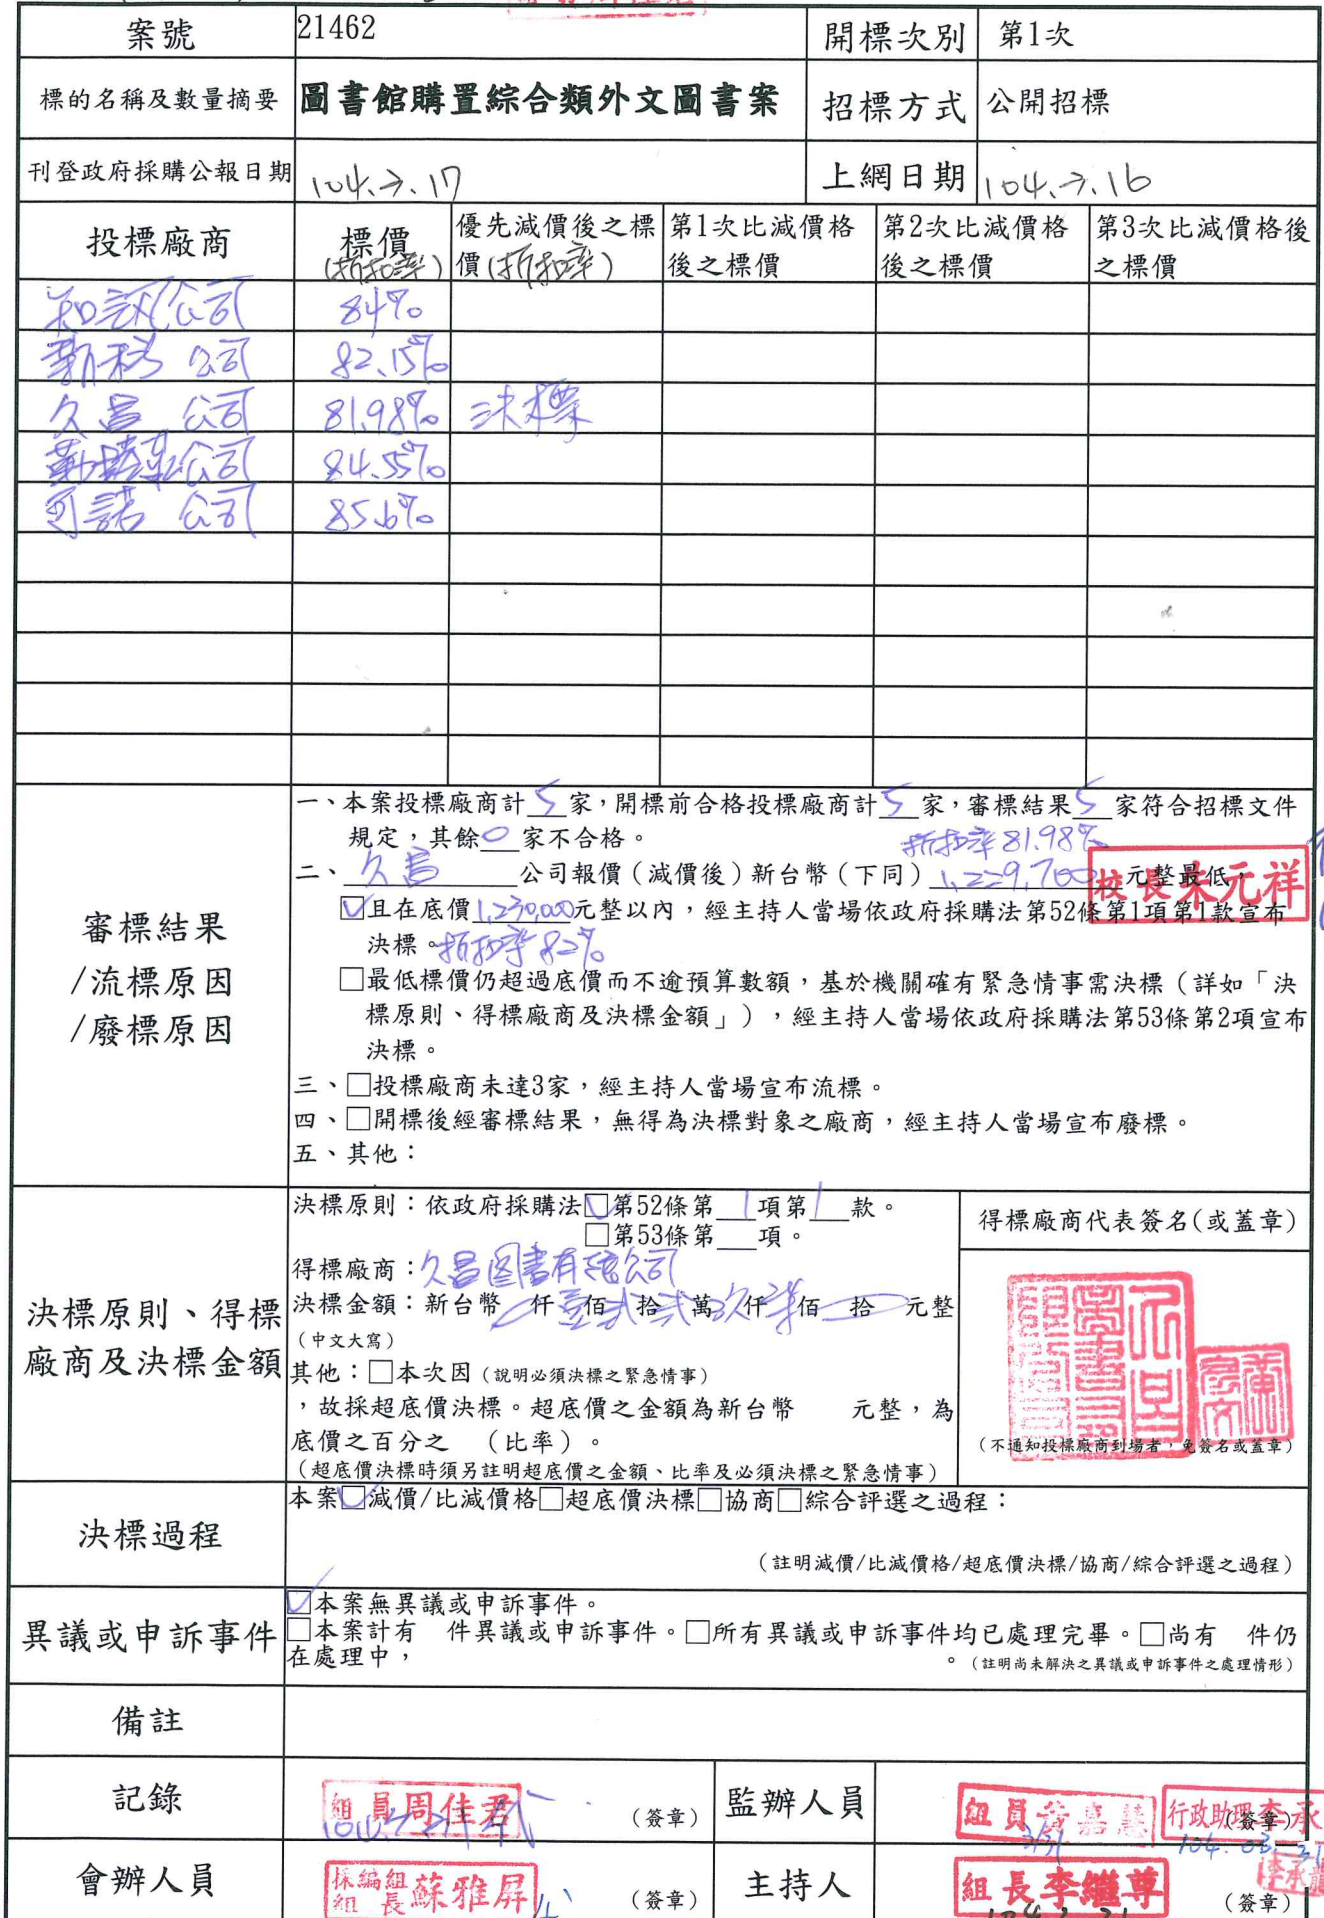 案號 21462 開標次別 第1次
標的名稱及數量摘要 圖書館購置綜合類外文圖書案 招標方式 公開招標
刊登政府採購公報日期 104.3.17 上網日期 104.3.16
投標廠商 標價(折扣率) 優先減價後之標價(折扣率) 第1次比減價格後之標價 第2次比減價格後之標價 第3次比減價格後之標價
公司 84%
公司 82.15%
久昌 公司 81.98% 決標
公司 84.55%
可諾 公司 85.6%
審標結果
/流標原因
/廢標原因
一、本案投標廠商計5家，開標前合格投標廠商計5家，審標結果5家符合招標文件
規定，其餘0家不合格。
折扣率81.98%
二、久昌公司報價（減價後）新台幣（下同）1,229,700元整最低，
校長朱元祥
☑且在底價1,230,000元整以內，經主持人當場依政府採購法第52條第1項第1款宣布
決標。折扣率82%
□最低標價仍超過底價而不逾預算數額，基於機關確有緊急情事需決標（詳如「決
標原則、得標廠商及決標金額」），經主持人當場依政府採購法第53條第2項宣布
決標。
三、□投標廠商未達3家，經主持人當場宣布流標。
四、□開標後經審標結果，無得為決標對象之廠商，經主持人當場宣布廢標。
五、其他：
決標原則、得標
廠商及決標金額
決標原則：依政府採購法☑第52條第1項第1款。
□第53條第 項。
得標廠商：久昌图書有限公司
決標金額：新台幣 仟壹佰貳拾貳萬玖仟柒佰 拾 元整
（中文大寫）
其他：□本次因（說明必須決標之緊急情事）
，故採超底價決標。超底價之金額為新台幣 元整，為
底價之百分之 （比率）。
（超底價決標時須另註明超底價之金額、比率及必須決標之緊急情事）
得標廠商代表簽名(或蓋章)
（不通知投標廠商到場者，免簽名或蓋章）
決標過程
本案☑減價/比減價格□超底價決標□協商□綜合評選之過程：
（註明減價/比減價格/超底價決標/協商/綜合評選之過程）
異議或申訴事件
☑本案無異議或申訴事件。
□本案計有 件異議或申訴事件。□所有異議或申訴事件均已處理完畢。□尚有 件仍
在處理中， 。（註明尚未解決之異議或申訴事件之處理情形）
備註
記錄 組員周佳君 （簽章） 監辦人員 組員黃嘉慧 3/31 行政助理李承 （簽章）
104.03.31
會辦人員 採編組組長蘇雅屏 （簽章） 主持人 組長李繼尊 （簽章）